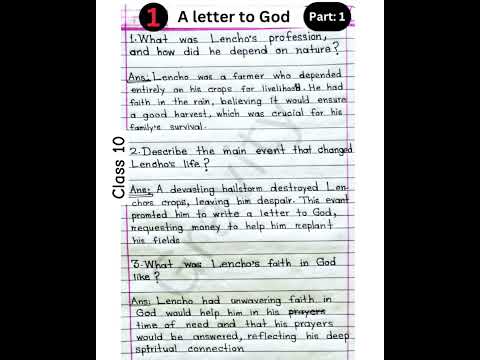 1 A letter to God Part: 1
1. What was Lencho's profession,
and how did he depend on nature?
Ans: Lencho was a farmer who depended
entirely on his crops for livelihood. He had
faith in the rain, believing it would ensure
a good harvest, which was crucial for his
family's survival.
2. Describe the main event that changed
Lencho's life?
Ans: A devasting hailstorm destroyed Len-
cho's crops, leaving him despair. This evant
promted him to write a letter to God,
requesting money to help him replant
his fields.
3. What was Lencho's faith in God
like?
Ans: Lencho had unwavering faith in
God would help him in his prayers
time of need and that his prayers
would be answered, reflecting his deep
spiritual connection
Class 10